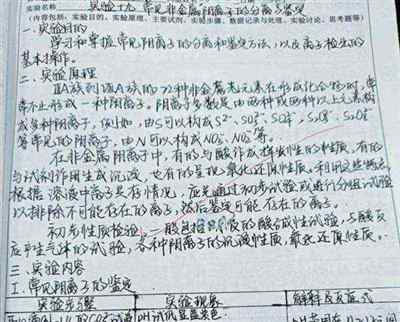 实验名称 实验十九 常见非金属阴离子的分离与鉴定
(内容包括：实验目的、实验原理、主要试剂、实验步骤、数据记录与处理、实验讨论、思考题等)
一.实验目的
学习和掌握常见阴离子的分离和鉴定方法，以及离子检出的
基本操作。
二.实验原理
ⅢA族到ⅦA族的22种非金属元素在形成化合物时，常
常不止形成一种阴离子。阴离子多数是由两种或两种以上元素构
成多种阴离子，例如，由S可以构成S²⁻、SO₃²⁻、SO₄²⁻、S₂O₃²⁻、S₂O₈²⁻
等常见的阴离子，由N可以构成NO₃⁻、NO₂⁻等。
在非金属阴离子中，有的与酸作成挥发性的性质，有的
与试剂作用生成沉淀，也有的呈现氧化还原性质，利用这些特点，
根据溶液中离子共存情况，应先通过初步试验或进行分组试验
以排除不可能存在的离子，然后鉴定可能存在的离子。
初步性质检验，一般包括的酸碱性试验，与酸反
应产生气体的试验，各种阴离子的沉淀性质，氧化还原性质。
三.实验内容
1.常见阴离子的鉴定
实验步骤 实验现象 解释及反应式
pH试纸显蓝色